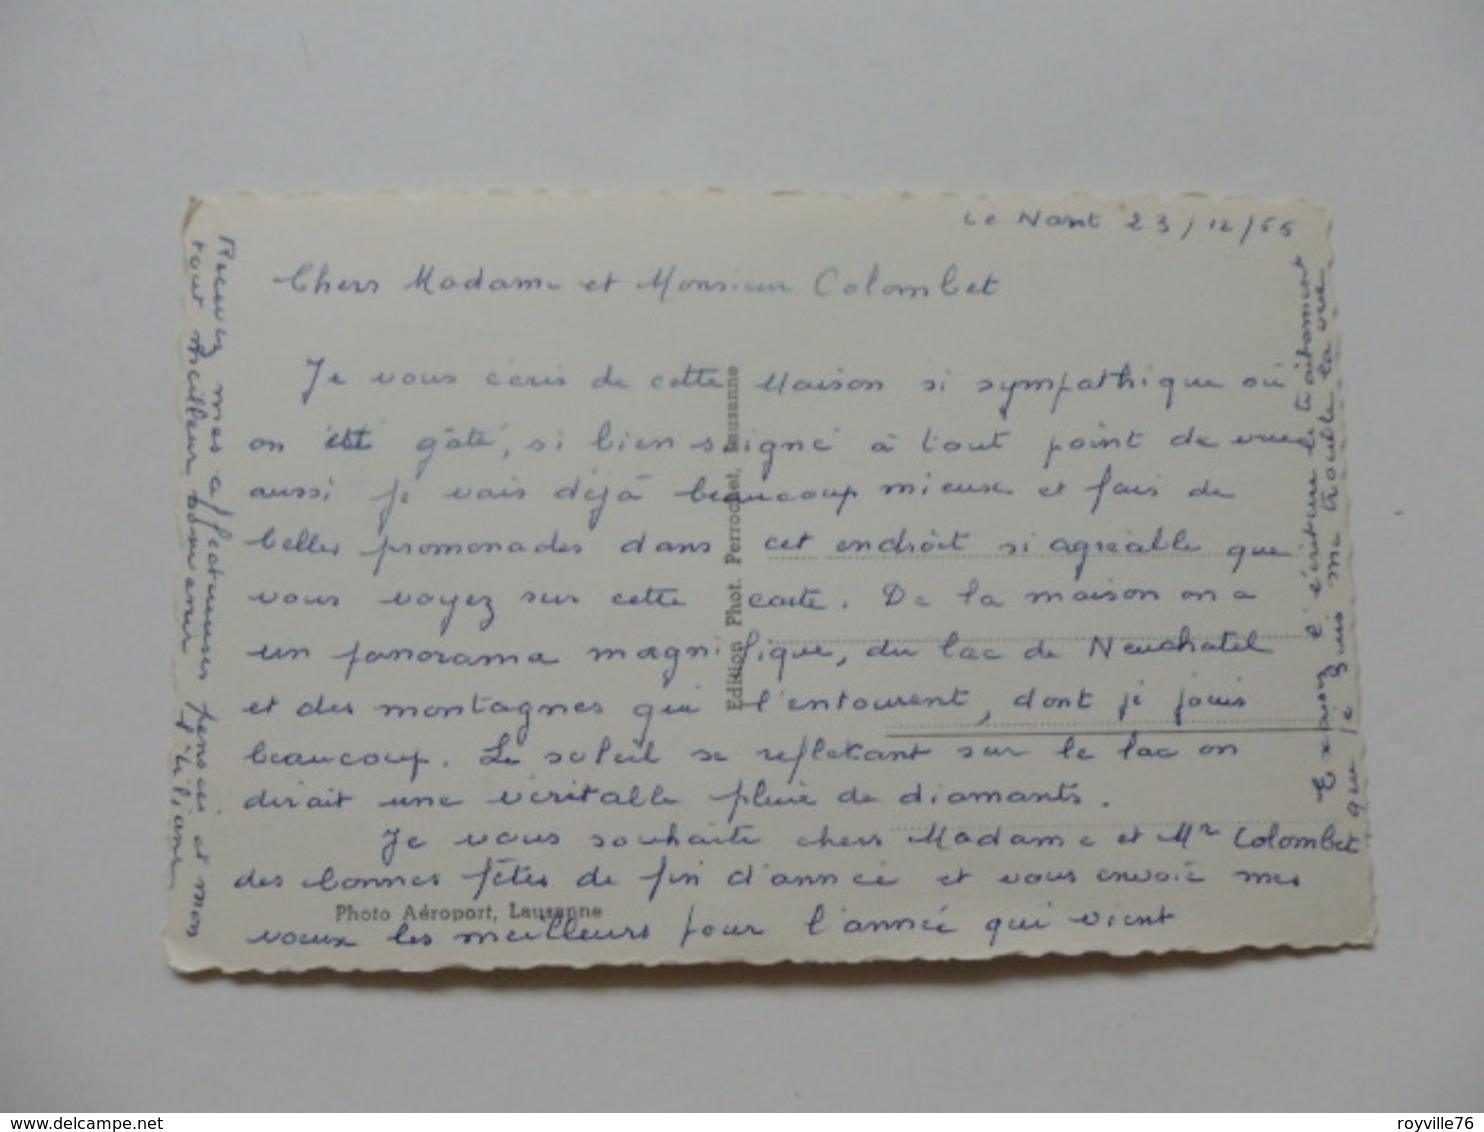 Le Nant 23/12/66
Chers Madame et Monsieur Colombet
Je vous écris de cette Maison si sympathique où
on est gâté, si bien soigné à tout point de vue
aussi je vais déjà beaucoup mieux et fais de
belles promenades dans cet endroit si agréable que
vous voyez sur cette carte. De la maison on a
un panorama magnifique, du lac de Neuchatel
et des montagnes qui l'entourent, dont je jouis
beaucoup. Le soleil se refletant sur le lac on
dirait une véritable pluie de diamants.
Je vous souhaite chers Madame et Mr Colombet
des bonnes fêtes de fin d'année et vous envoie mes
voeux les meilleurs pour l'année qui vient
Recevez mes affectueuses pensées et mon
tout meilleur souvenir
Liliane
Excusez l'écriture le traitement
que je suis me trouble la vue
Edition Phot. Perrochet, Lausanne
Photo Aéroport, Lausanne
delcampe.net
royville76